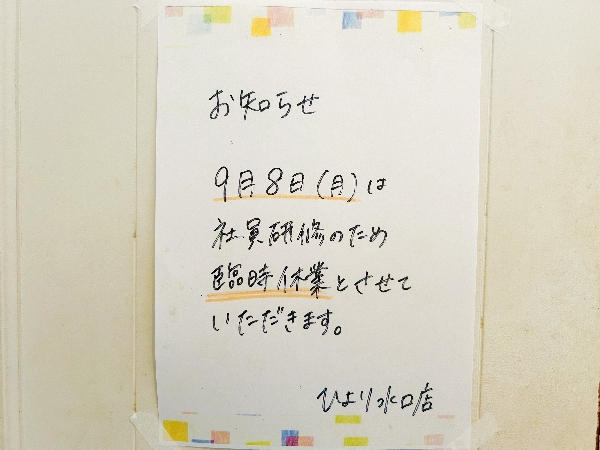 お知らせ
9月8日(月)は
社員研修のため
臨時休業とさせて
いただきます。
ひより水口店